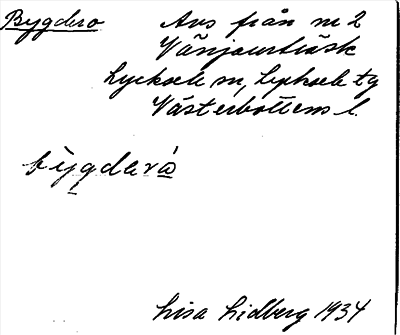 Bygdero Avs från nr 2
Vänjaurträsk
Lycksele sn, Lycksele tg
Västerbottens l.
bygdarå
Lisa Lidberg 1934